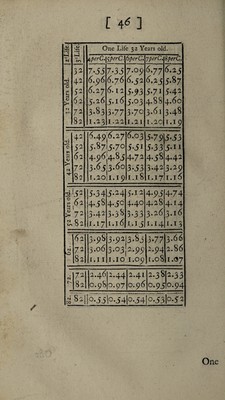 [ 46 ]
2d Life. 3d Life. One Life 52 Years old.
4perC. 4½perC. 5 6perC. 7perC. 8perC.
32 Years old.
32 7.55 7.35 7.09 6.77 6.25
42 6.96 6.76 6.52 6.25 5.87
52 6.27 6.12 5.93 5.71 5.42
62 5.26 5.16 5.03 4.88 4.60
72 3.83 3.77 3.70 3.61 3.48
82 1.23 1.22 1.21 1.20 1.19
42 Years old.
42 6.49 6.27 6.03 5.79 5.53
52 5.87 5.70 5.51 5.33 5.11
62 4.96 4.85 4.72 4.58 4.42
72 3.65 3.60 3.53 3.42 3.29
82 1.20 1.19 1.18 1.17 1.16
52 Years old.
52 5.34 5.24 5.12 4.95 4.74
62 4.58 4.50 4.40 4.28 4.14
72 3.42 3.38 3.33 3.26 3.16
82 1.17 1.16 1.15 1.14 1.13
62.
62 3.98 3.92 3.85 3.77 3.66
72 3.06 3.03 2.99 2.94 2.86
82 1.11 1.10 1.09 1.08 1.07
72.
72 2.46 2.44 2.41 2.38 2.33
82 0.98 0.97 0.96 0.95 0.94
82.
82 0.55 0.54 0.54 0.53 0.52
One